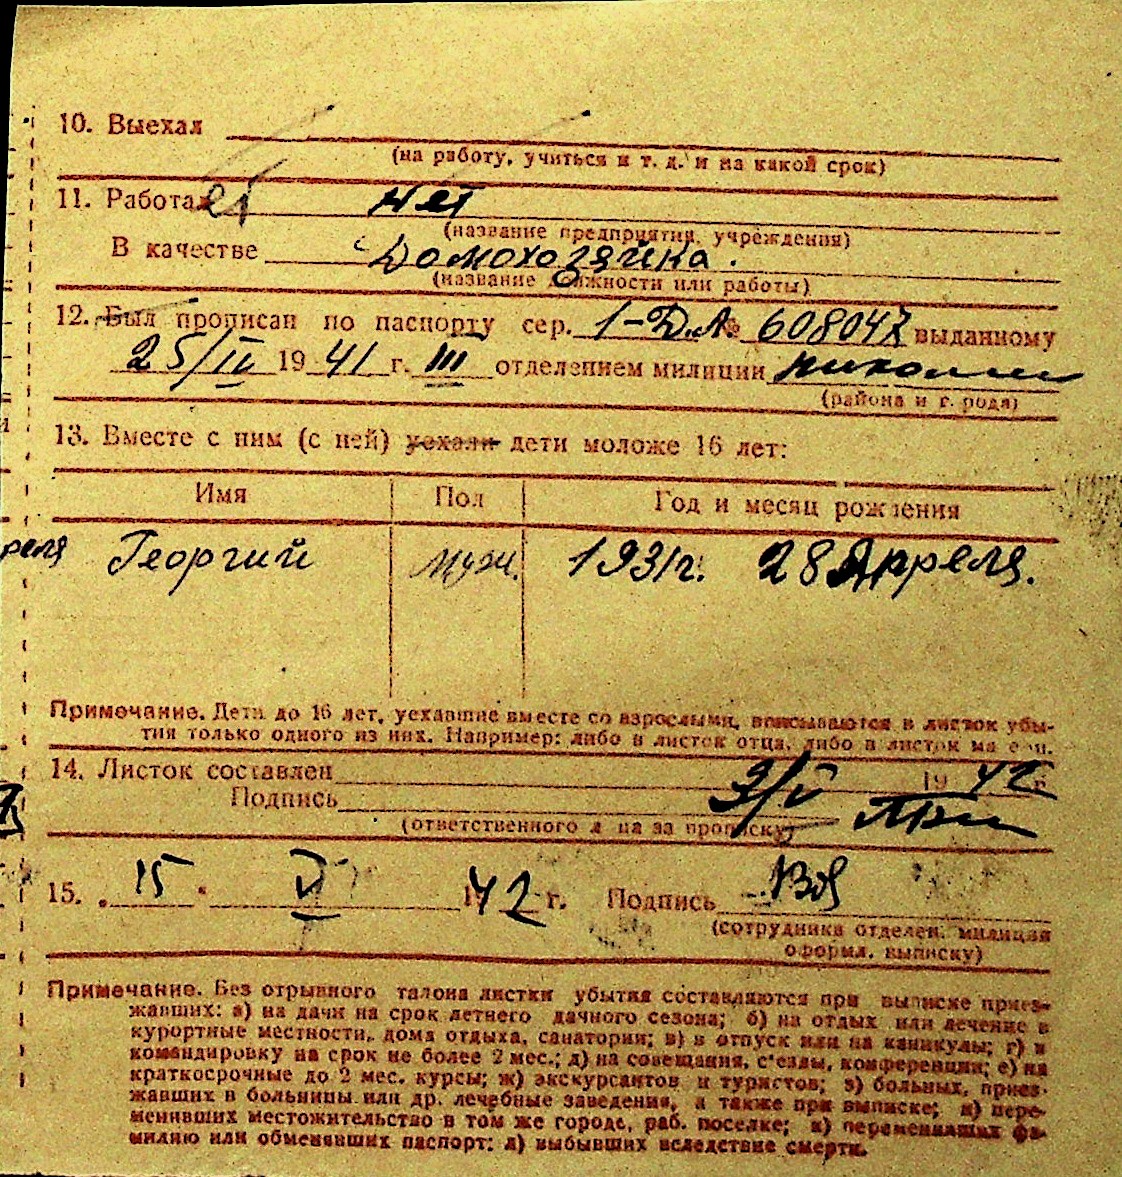 10. Выехал
(на работу, учиться и т. д. и на какой срок)
11. Работает нет
(название предприятия, учреждения)
В качестве Домохозяйка.
(название должности или работы)
12. Был прописан по паспорту сер. 1-Д.А № 608047 выданному
25/IV 1941 г. III отделением милиции
(района и города)
13. Вместе с ним (с ней) уехали дети моложе 16 лет:
Имя Пол Год и месяц рождения
реля Георгий муж. 1931г. 28 Апреля.
Примечание. Дети до 16 лет, уехавшие вместе со взрослыми, вписываются в листок убы-
тия только одного из них. Например: либо в листок отца, либо в листок матери.
14. Листок составлен 3/V 1942 г.
Подпись
(ответственного лица за прописку)
15. 15 V 1942 г. Подпись
(сотрудника отделен. милиции
оформл. выписку)
Примечание. Без отрывного талона листки убытия составляются при выписке приез-
жавших: а) на дачи на срок летнего дачного сезона; б) на отдых или лечение в
курортные местности, дома отдыха, санатории; в) в отпуск или на каникулы; г) в
командировку на срок не более 2 мес.; д) на совещания, с'езды, конференции; е) на
краткосрочные до 2 мес. курсы; ж) экскурсантов и туристов; з) больных, приез-
жавших в больницы или др. лечебные заведения, а также при выписке; и) пере-
менивших местожительство в том же городе, раб. поселке; к) переменивших фа-
милию или обменявших паспорт; л) выбывших вследствие смерти.